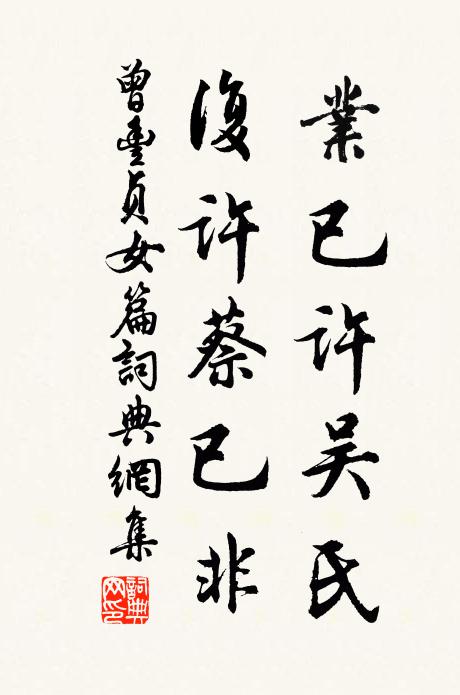 業已許吳氏
復許蔡已非
曾豐貞女篇詞典網集
詞典网印